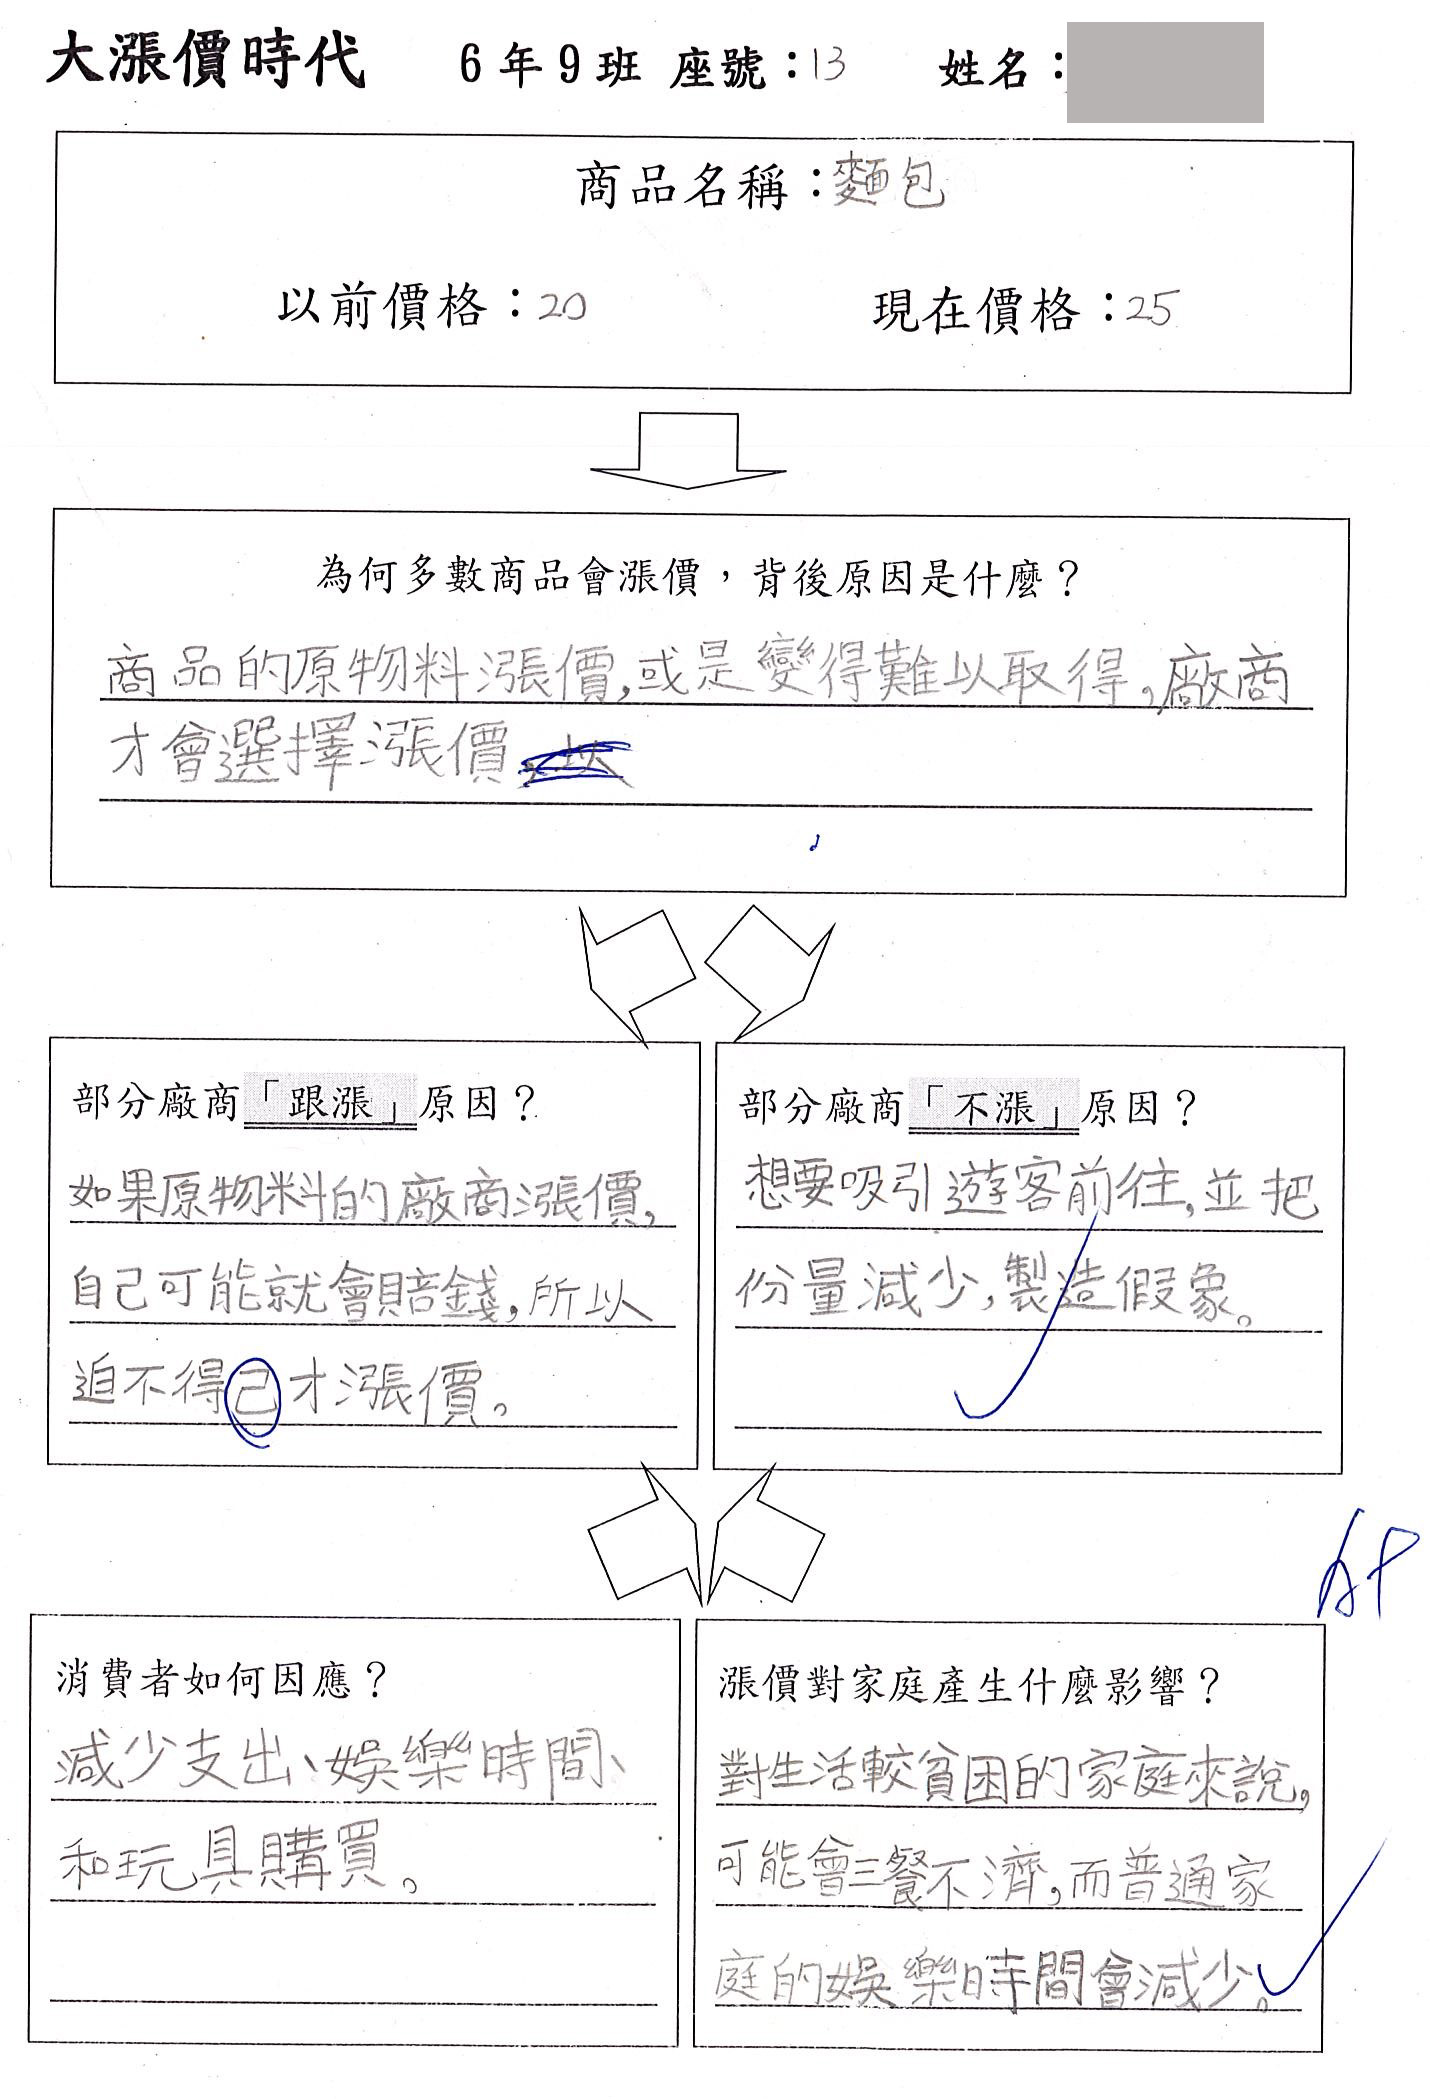 大漲價時代 6年9班 座號：13 姓名：
商品名稱：麵包
以前價格：20 現在價格：25
為何多數商品會漲價，背後原因是什麼？
商品的原物料漲價，或是變得難以取得，廠商
才會選擇漲價
部分廠商「跟漲」原因？
如果原物料的廠商漲價，
自己可能就會賠錢，所以
迫不得己才漲價。
部分廠商「不漲」原因？
想要吸引遊客前往，並把
份量減少，製造假象。
A+
消費者如何因應？
減少支出、娛樂時間、
和玩具購買。
漲價對家庭產生什麼影響？
對生活較貧困的家庭來說，
可能會三餐不濟，而普通家
庭的娛樂時間會減少。